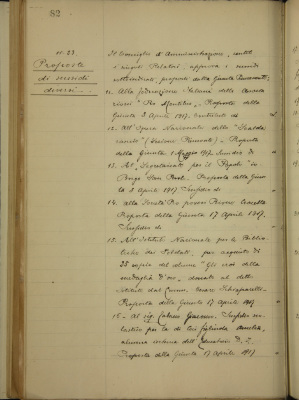 82
11-23.
Proposte
di sussidi
diversi...
Il Consiglio di Amministrazione, uditi
i singoli Relatori, approva i sussidi
sottoindicati, proposti dalla Giunta
11. Alla Federazione Italiana delle
"Pro Montibus". Proposta della
Giunta 3 Aprile 1917. di
12. All'Opera Nazionale della "Scuola
" (Sezione Piemonte). Proposta
della Giunta 1 Maggio 1917. Sussidio di
13. Al "Segretariato per il Popolo" in
Borgo San Paolo. Proposta della Giun-
ta 3 Aprile 1917. Sussidio di
14. alla Società Pro poveri
Proposta della Giunta 17 Aprile 1917.
Sussidio di
15. All'Istituto Nazionale per le Biblio-
teche dei Soldati, per acquisto di
35 copie del volume "Gli eroi della
medaglia d'oro", donate al detto
Istituto dal Comm. Cesare Schiapparelli.
Proposta della Giunta 17 Aprile 1917
16 - Al sig. Sussidio
per la di lui figliuola Amalia,
alunna interna dell'Educatorio D. P.
Proposta della Giunta 17 Aprile 1917